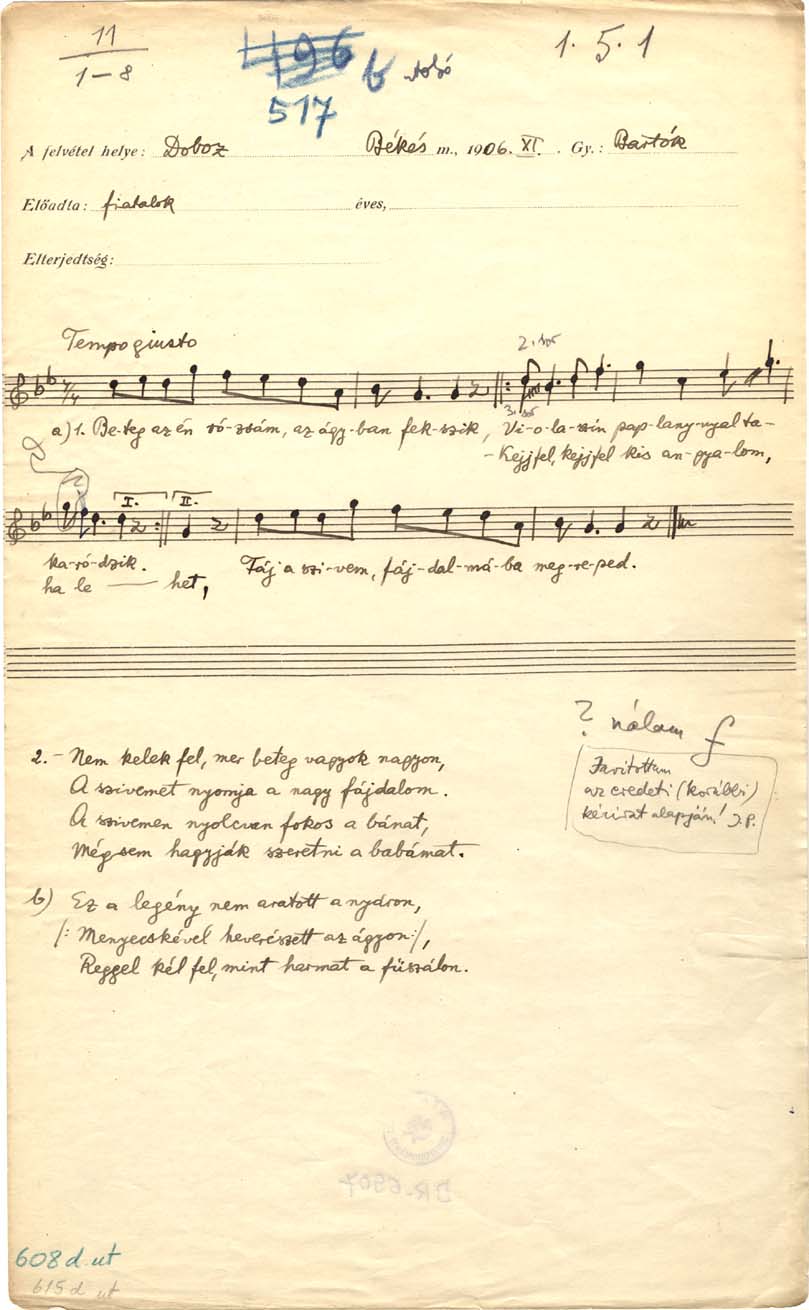 11
1-8
496 b
517
1.5.1
A felvétel helye: Doboz Békés m., 1906. XI. Gy.: Bartók
Előadta: fiatalok éves,
Elterjedtség:
Tempo giusto
2. sor
3. sor
a) 1. Be-teg az én ró-zsám, az ágy-ban fek-szik, Vi-o-la-szín pap-lany-nyal ta-
-Kejjfel, kejjfel kis an-gya-lom,
I. II.
ka-ró-dzik. Fáj a szi-vem, fáj-dal-má-ba meg-re-ped.
ha le — het,
? nálam f
Javítottam
az eredeti (korábbi)
kézirat alapján! J.P.
2. - Nem kelek fel, mer beteg vagyok nagyon,
A szivemet nyomja a nagy fájdalom.
A szivemen nyolcvan fokos a bánat,
Mégsem hagyják szeretni a babámat.
b) Ez a legény nem aratott a nyáron,
/: Menyecskével heverészett az ágyon :/,
Reggel kél fel, mint harmat a fűszálon.
DR-6907
608 d. ut
615 d ut